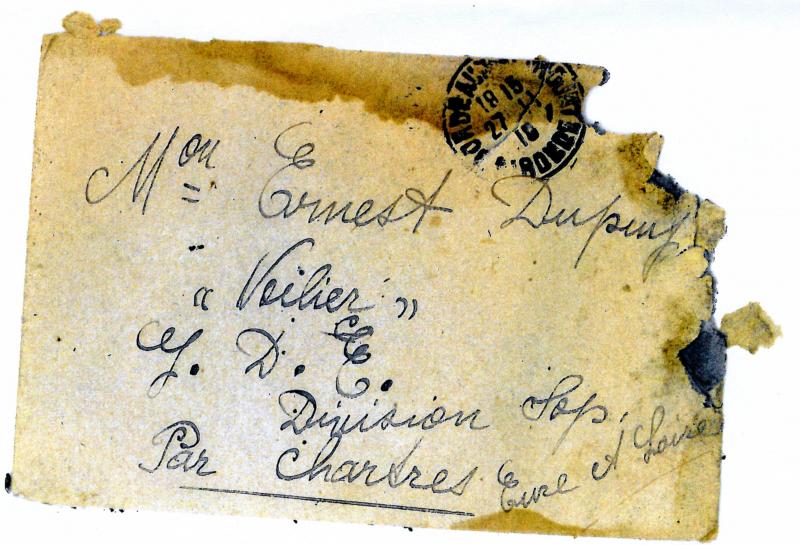 BORDEAUX
18 15
27
GIRONDE
Mon Ernest Dupuy
" Voilier "
G. D. E.
Division
Par Chartres Eure et Loire